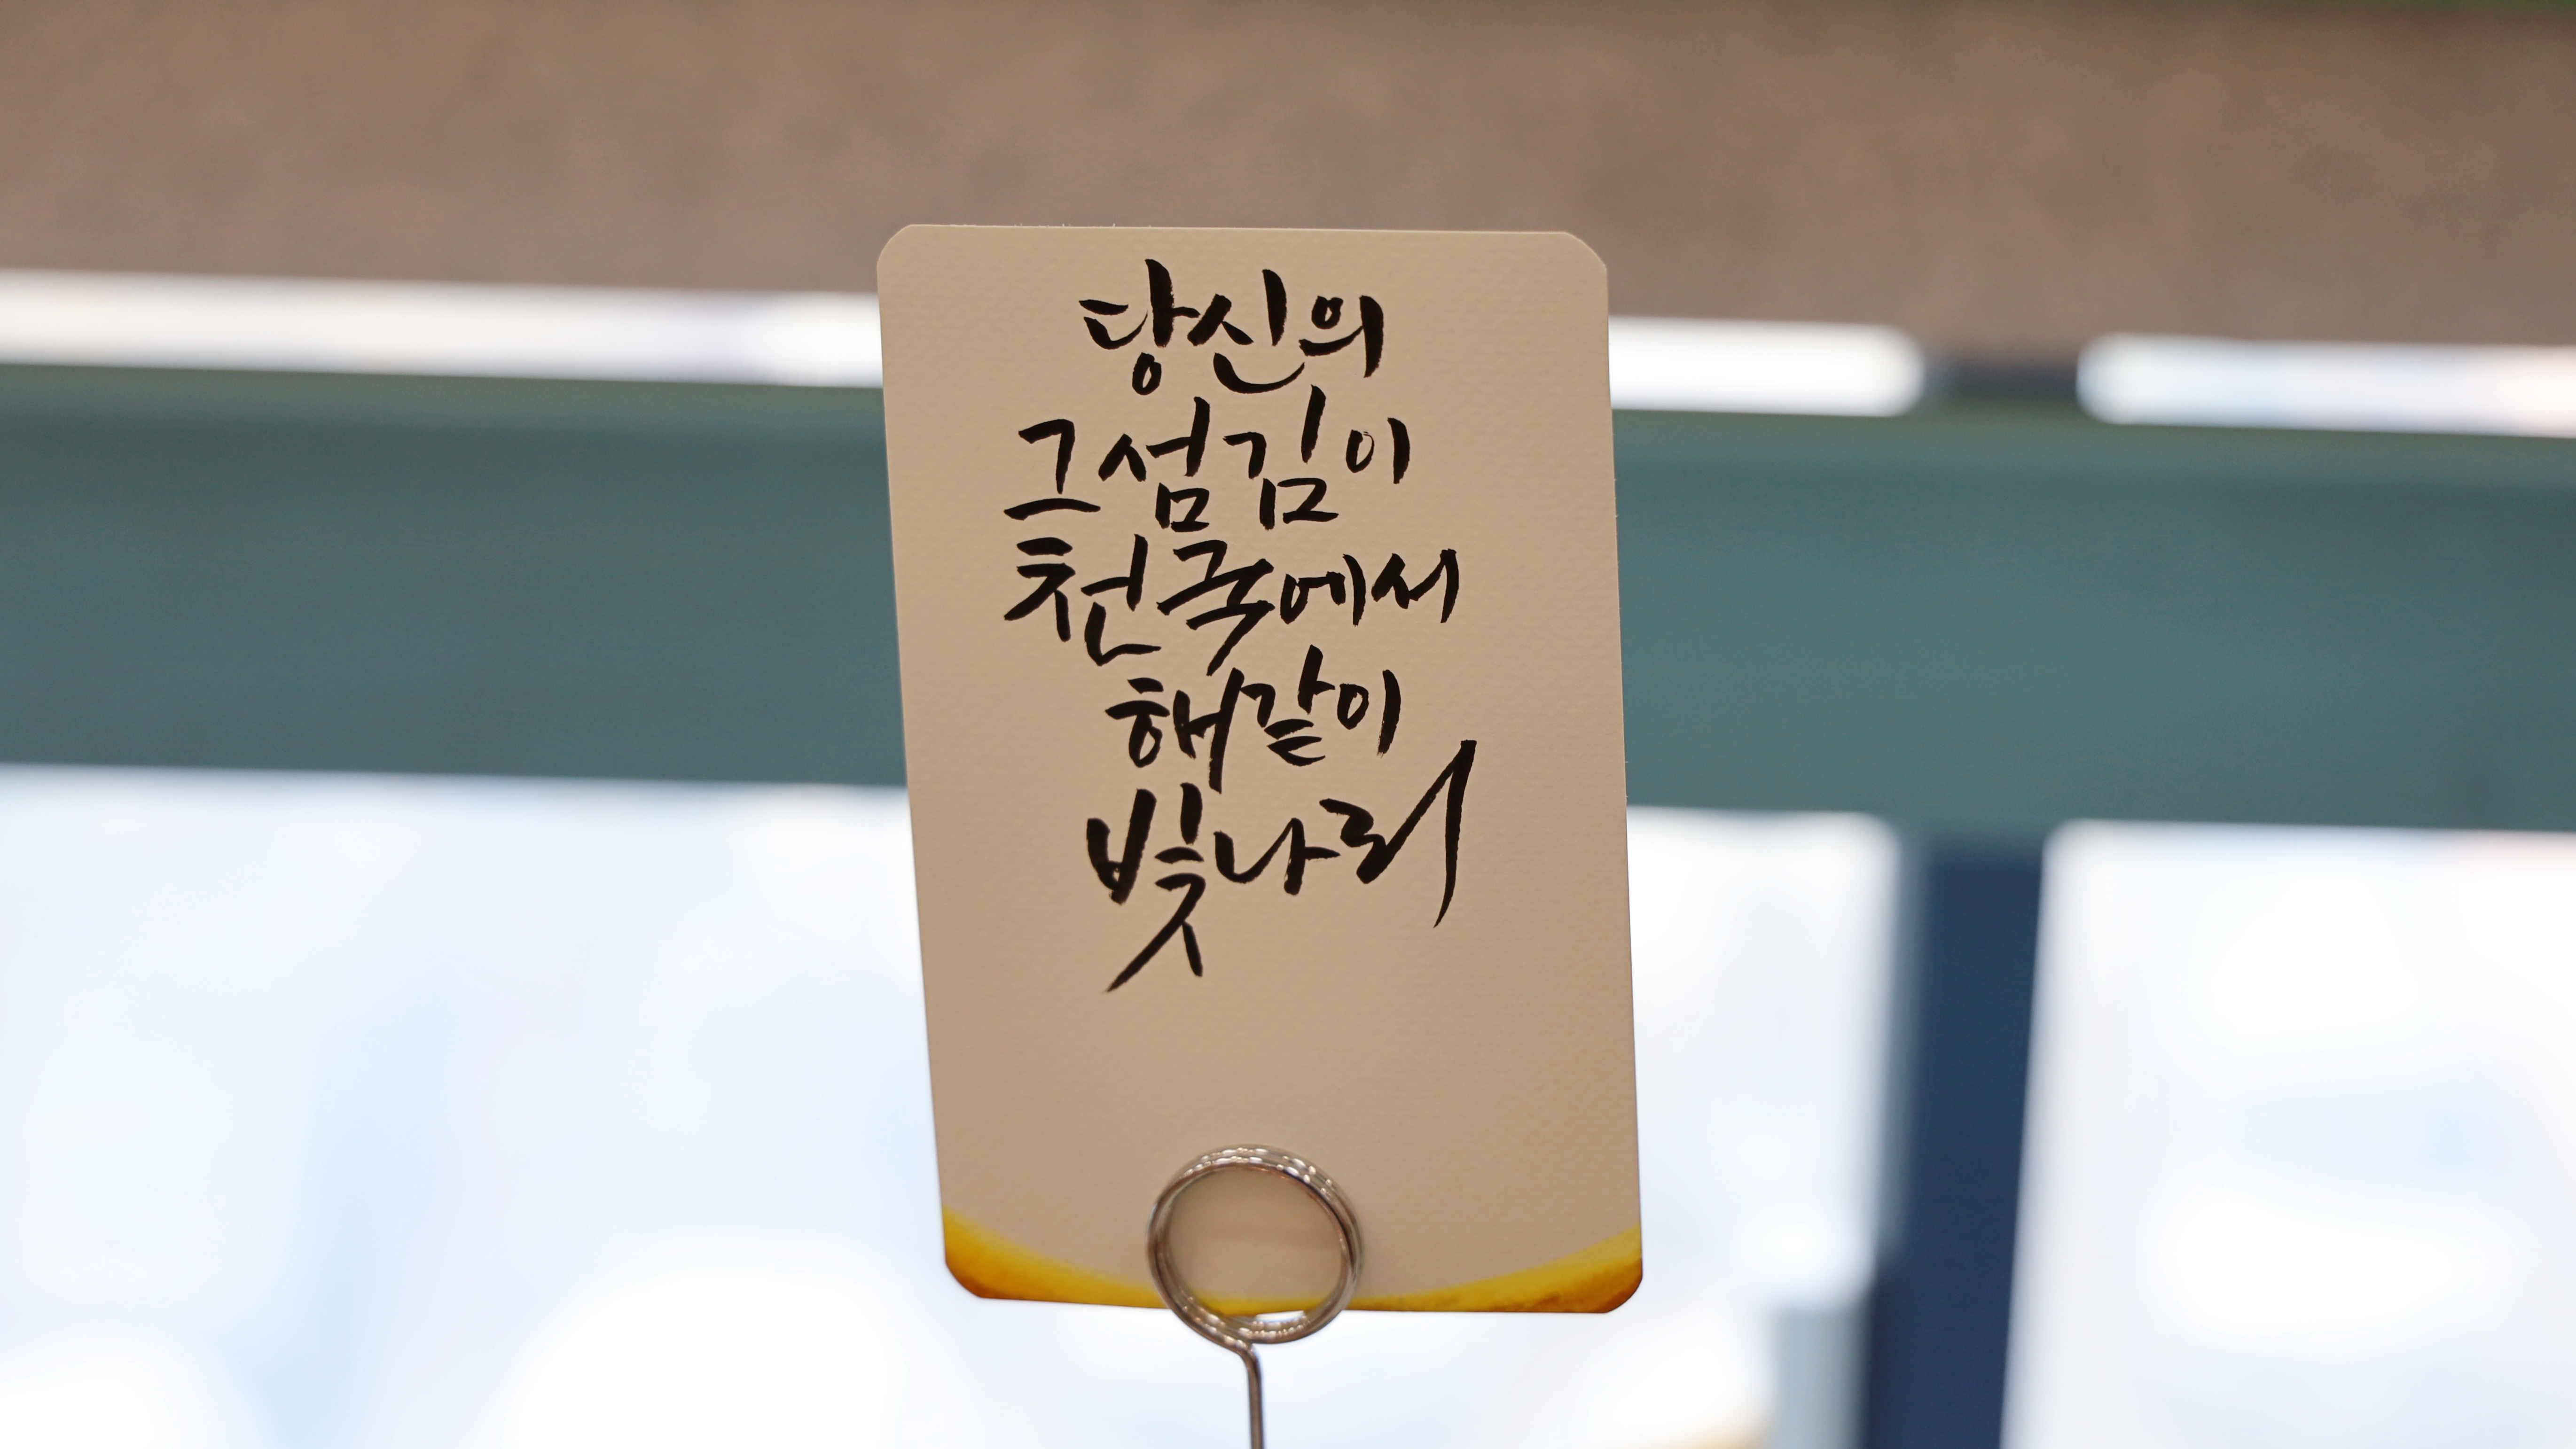 당신의
그 섬김이
천국에서
해같이
빛나리